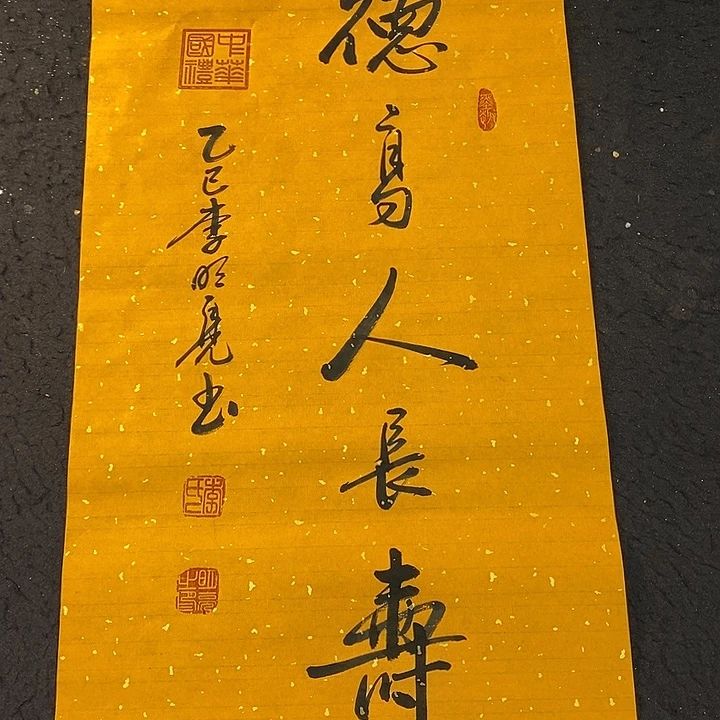 德高人長壽
乙巳李明亮书
中華國禮
李氏